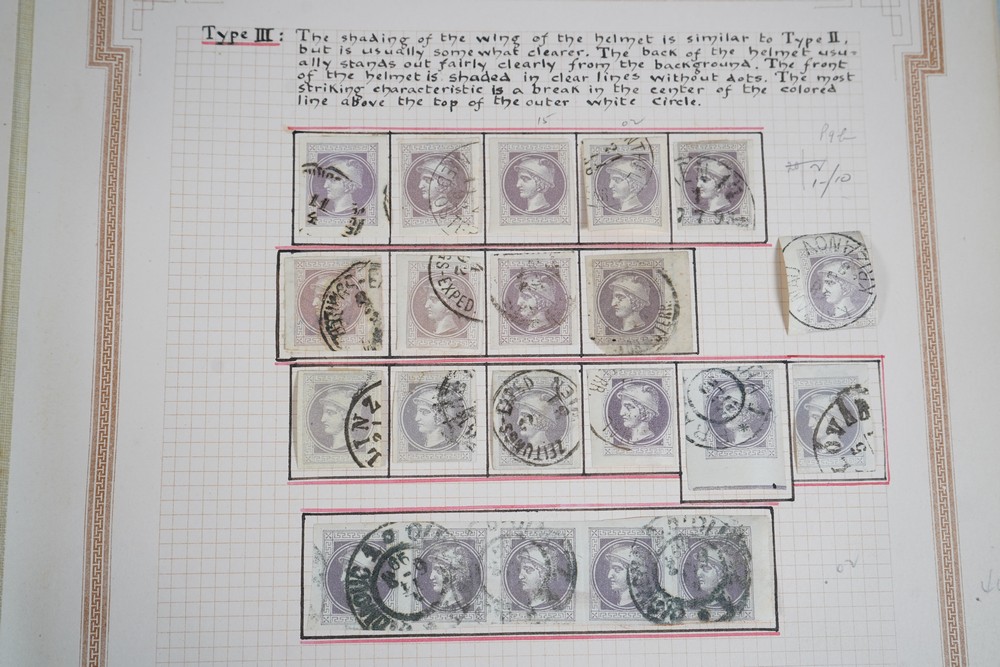 Type III: The shading of the wing of the helmet is similar to Type II,
but is usually somewhat clearer. The back of the helmet usu-
ally stands out fairly clearly from the background. The front
of the helmet is shaded in clear lines without dots. The most
striking characteristic is a break in the center of the colored
line above the top of the outer white circle.
15
02
1-/10
EXPED.
LINZ
ZEITUNGS-EXPED
02